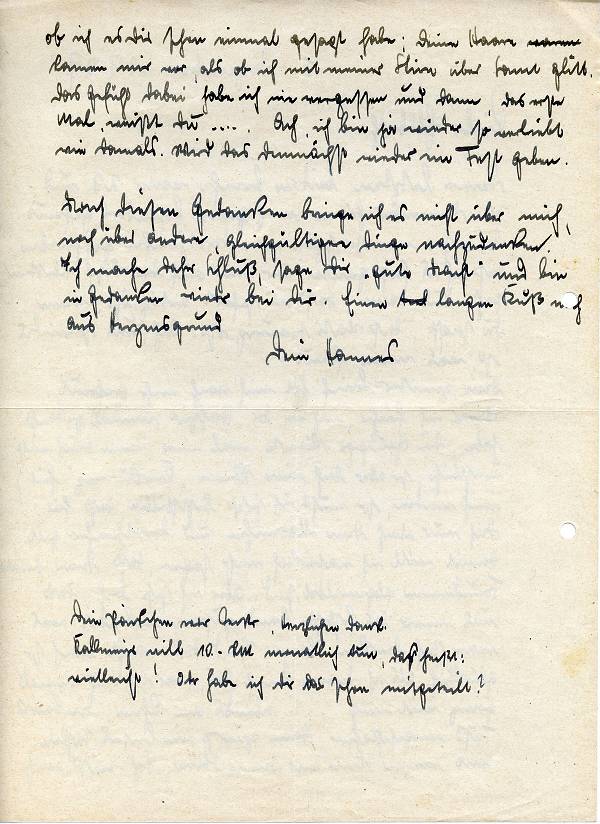 ob ich es dir schon einmal gesagt habe; deine Haare waren
kamen mir vor, als ob ich mit meiner Stirn über Samt glitt.
Das Gefühl dabei habe ich nie vergessen und dann, das erste
Mal, weißt du .... Ach, ich bin ja wieder so verliebt
wie damals. Wird das demnächst wieder ein Fest geben.
Nach diesen Gedanken bringe ich es nicht über mich,
noch über andere, gleichgültigere Dinge nachzudenken.
Ich mache daher Schluß, sage dir "gute Nacht" und bin
in Gedanken wieder bei dir. Einen langen Kuß noch
aus Herzensgrund
Dein Hannes
Dein Päckchen war, herzlichen Dank.
will 10.- RM monatlich tun, das heißt:
vielleicht! Oder habe ich dir das schon mitgeteilt?